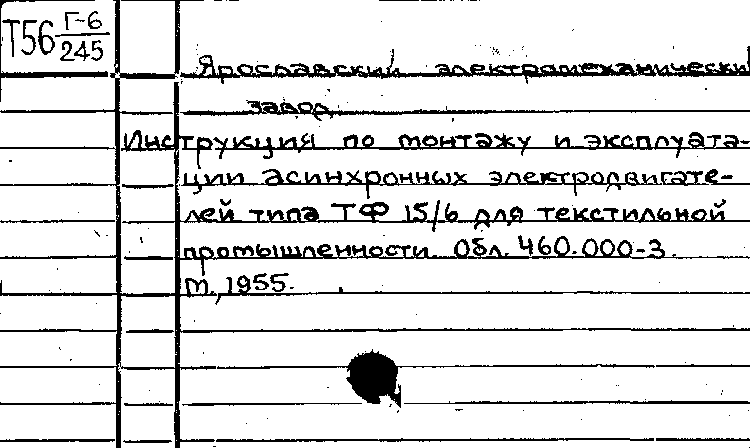 Т56 Г-6
245
Ярославский электромеханический
завод
Инструкция по монтажу и эксплуата-
ции асинхронных электродвигате-
лей типа ТФ 15/6 для текстильной
промышленности. Обл. 460.000-3.
М., 1955.